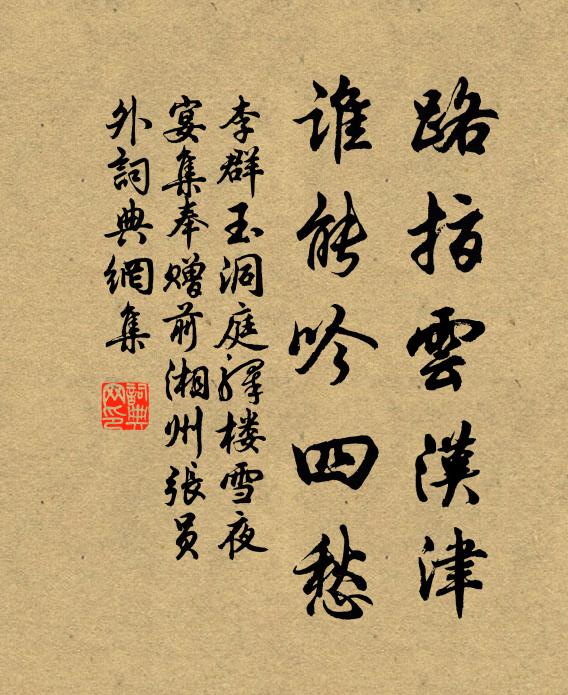 路指雲漢津
谁能吟四愁
李群玉洞庭驿楼雪夜
宴集奉赠前湘州張员
外詞典網集
詞典网印